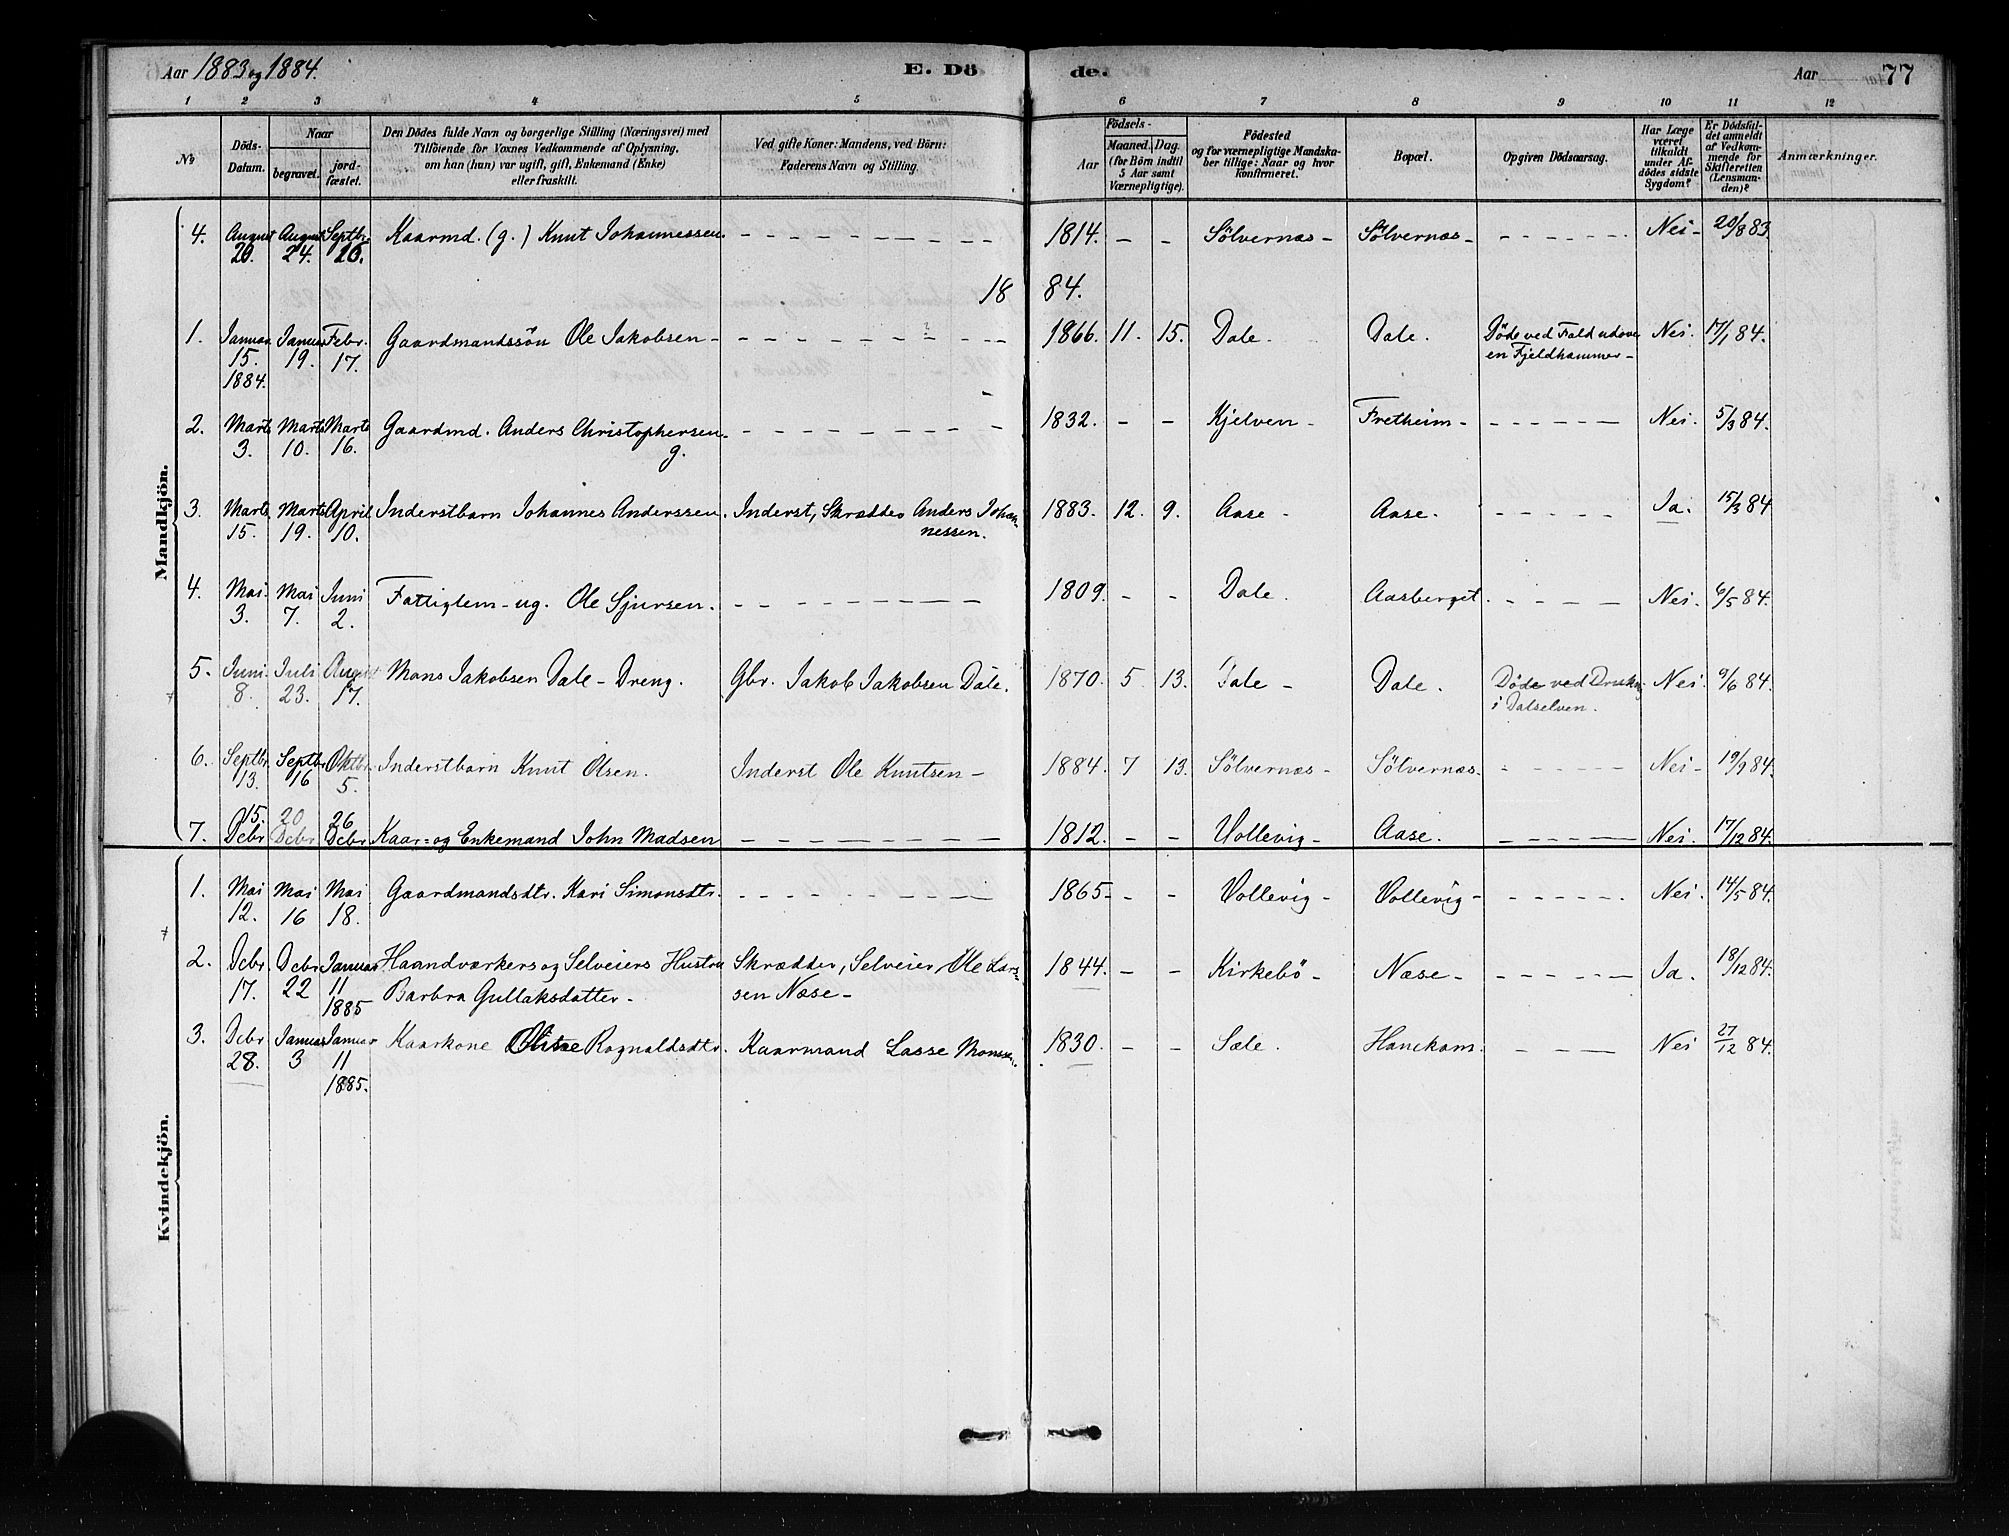 Aar 1883 og 1884. E. Dö de. Aar 77
1 2 3 4 5 6 7 8 9 10 11 12
No
Döds-Datum.
Naar
begravet. jordfæstet.
Den Dödes fulde Navn og borgerlige Stilling (Næringsvei) med
Tilföiende for Voxnes Vedkommende af Oplysning,
om han (hun) var ugift, gift, Enkemand (Enke)
eller fraskilt.
Ved gifte Koner: Mandens, ved Börn:
Faderens Navn og Stilling.
Födsels-
Aar Maaned. Dag.
(for Börn indtil
5 Aar samt
Værnepligtige).
Födested
og for værnepligtige Mandskaber tillige: Naar og hvor
konfirmeret.
Bopæl.
Opgiven Dödsaarsag.
Har Læge
været
tilkaldt
under Afdödes sidste
Sygdom?
Er Dödsfaldet anmeldt
af Vedkommende for
Skifteretten
(Lensmanden)?
Anmærkninger.
Mandkjön.
4. August 20. August 24. Septbr. 26. Kaarmd. (g.) Knut Johannessen. – – – 1814. – – Sölvernæs – Sölvernæs – – – – Nei – 20/8 83.
1884.
1. Januar 15. 1884. Januar 19. Febr. 17. Gaardmandssön Ole Jakobsen – – – – 1866. 11. 15. Dale. Dale. Döde ved Fald udover en Fjeldhammer – Nei. 17/1 84.
2. Marts 3. Marts 10. Marts 16. Gaardmd. Anders Christophersen g. – – – 1832. – – Kjelven – Fretheim – – – – Nei. 5/3 84.
3. Marts 15. Marts 19. April 10. Inderstbarn Johannes Anderssen. Inderst, Skrædder Anders Johannessen. 1883. 12. 9. Aase – Aase. – – – Ja. 15/3 84
4. Mai 3. Mai 7. Juni 2. Fattiglem – ug. Ole Sjursen. – – – 1809. – – Dale. Aasberget. – – – Nei. 6/5 84.
5. Juni 8. Juli 23. August 17. Mons Jakobsen Dale – Dreng. Gbr. Jakob Jakobsen Dale. 1870. 5 13. Dale – Dale. Döde ved Drukn. i Dalselven. Nei. 9/6 84.
6. Septbr 13. Septbr 16 Oktbr. 5. Inderstbarn Knut Olsen. Inderst Ole Knutsen – 1884. 7 13. Sölvernæs – Sölvernæs. – – – Nei – 19/9 84.
7. 15. Dcbr 20 Dcbr 26 Dcbr Kaar- og Enkemand John Madsen – – – 1812. – – Vollevig – Aase. – – – Nei. 17/12 84.
Kvindekjön.
1. Mai 12. Mai 16 Mai 18. Gaardmandsdtr. Kari Simonsdtr. – – – 1865 – – – Vollevig – Vollevig – – – – Nei. 14/5 84.
2. Dcbr 17. Dcbr 22 Januar 11 1885 Haandværkers og Selveiers Hustru Barbra Gullaksdatter – Skrædder, Selveier Ole Larssen Næse – 1844. – – Kirkebö – Næse – – – – Ja. 18/12 84.
3. Dcbr 28. Januar 3 Januar 11 1885. Kaarkone Ragnaldsdtr. Kaarmand Lasse Monsen. 1830. – – Sæle. Hanekam. – – – Nei 27/12 84.